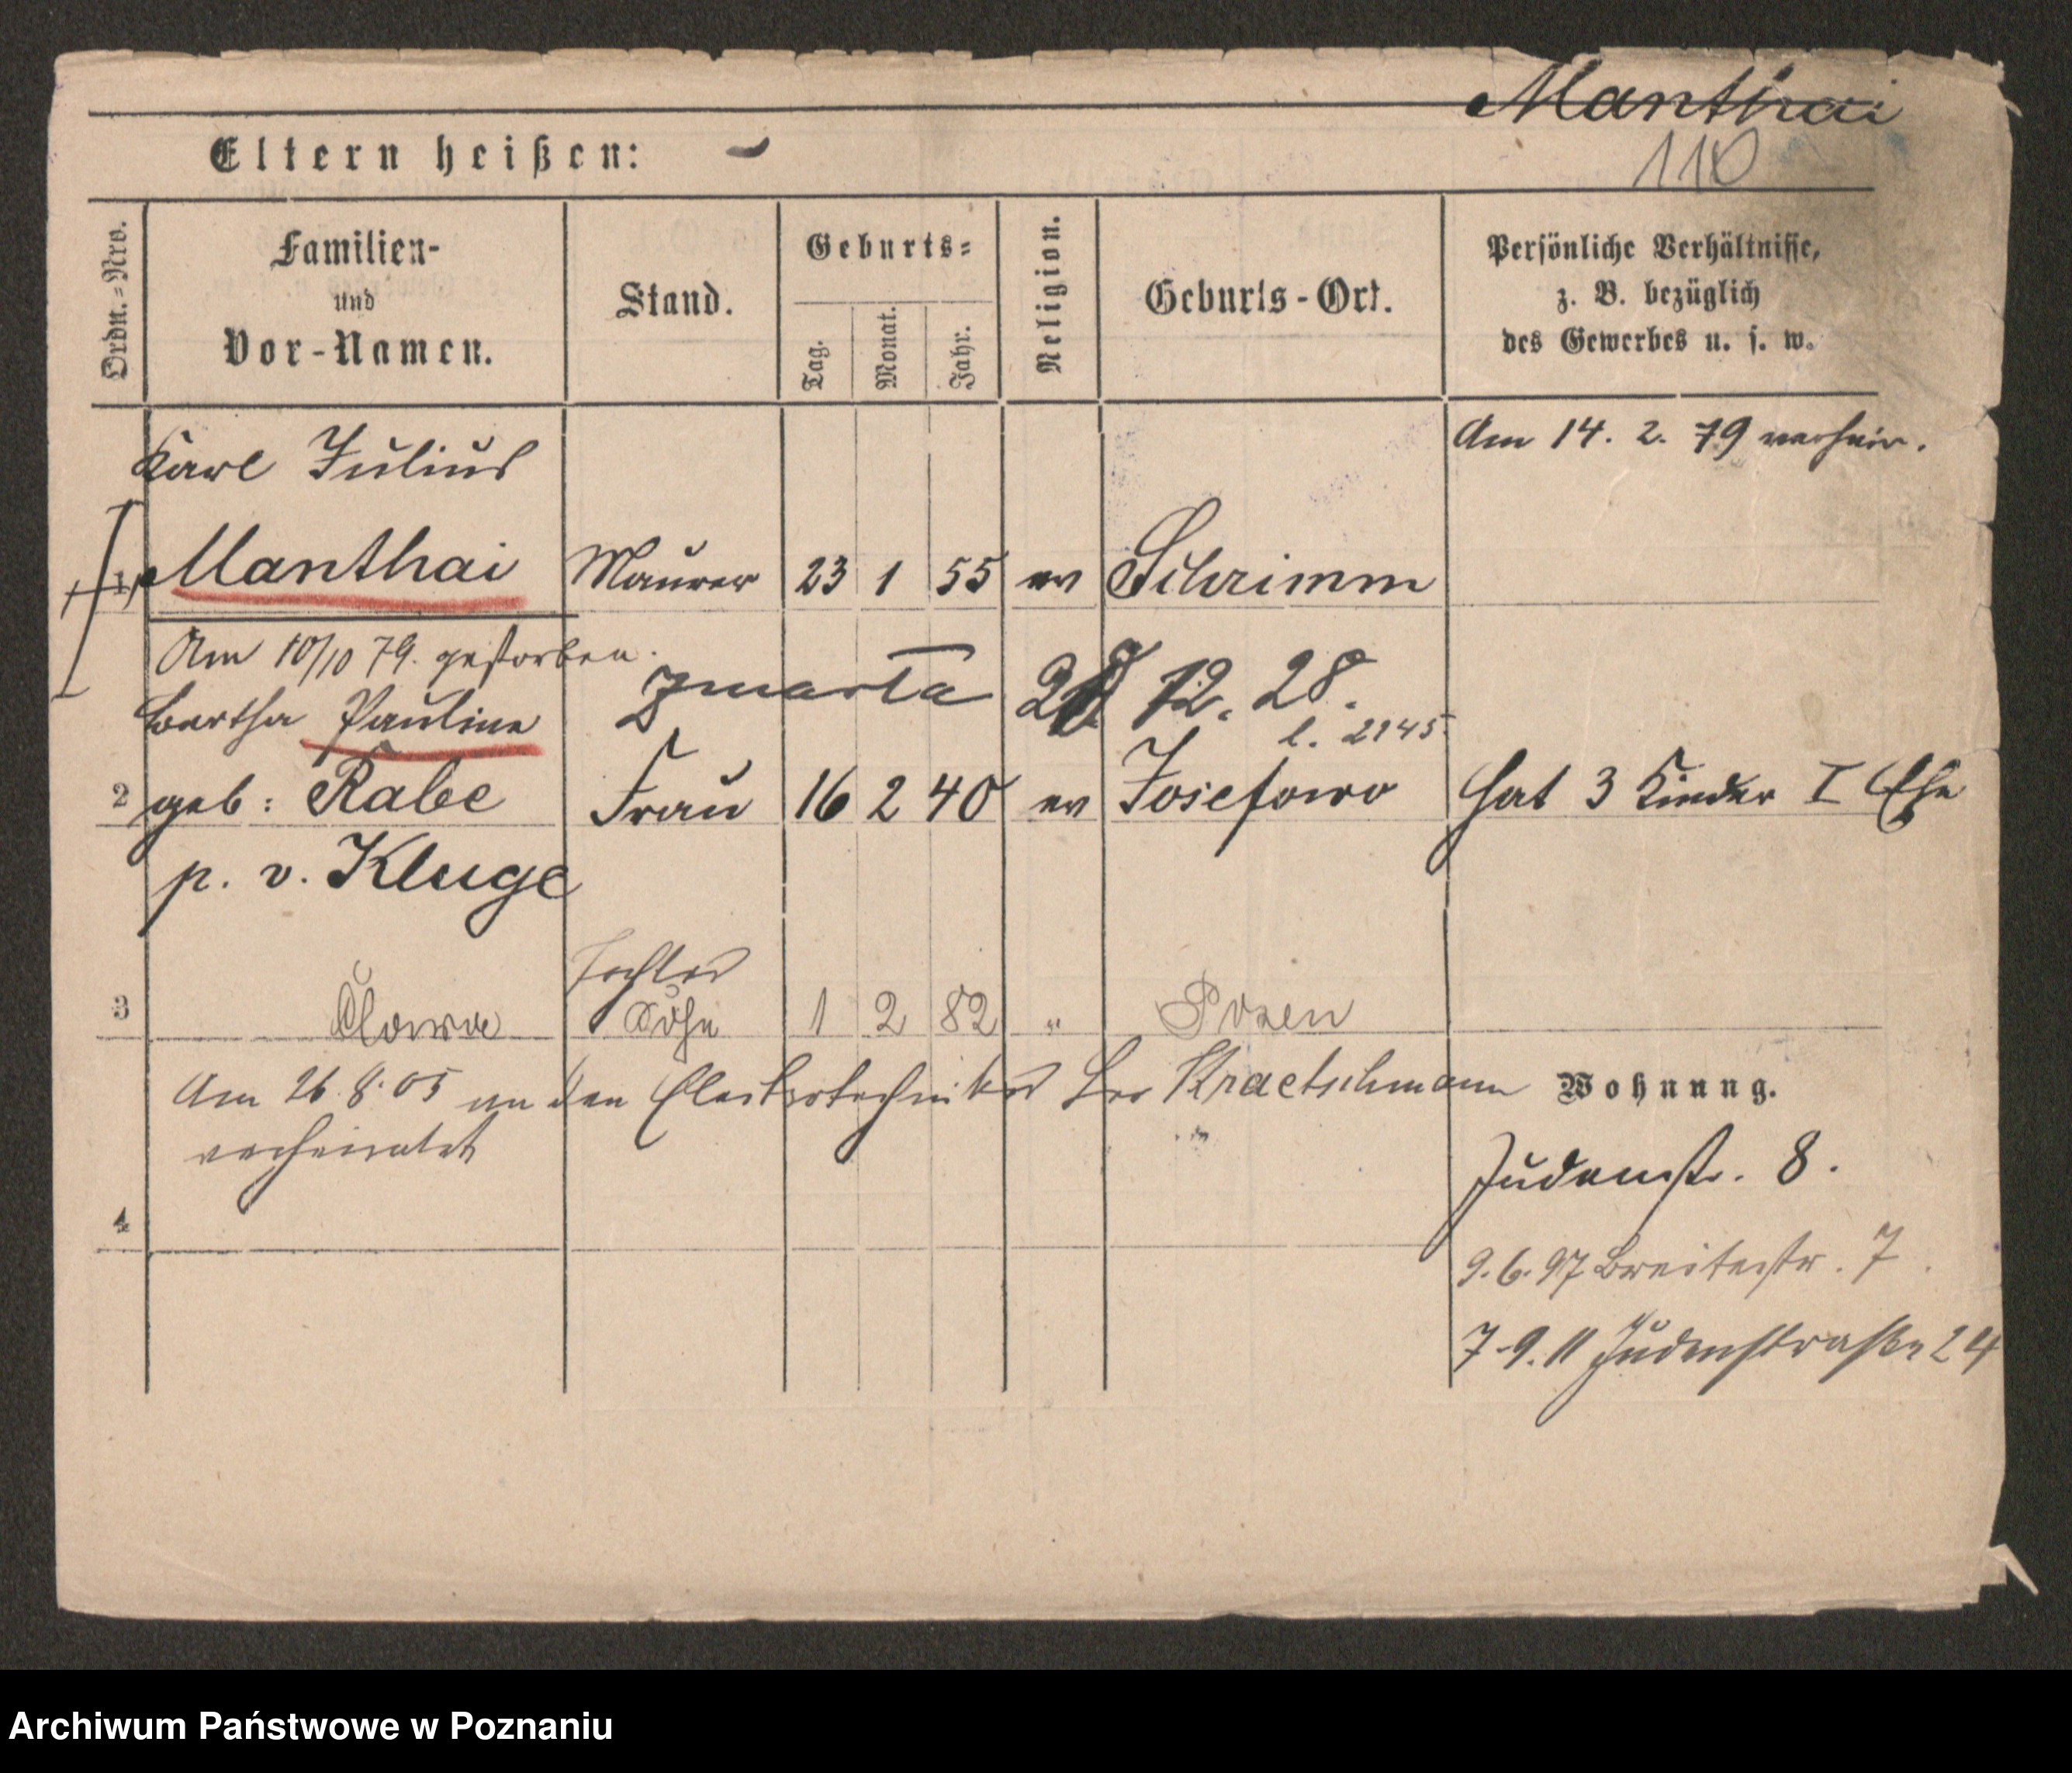 Manthai
110
Eltern heißen: -
Ordn.-Nro.
Familien-
und
Vor-Namen.
Stand.
Geburts-
Tag.
Monat.
Jahr.
Religion.
Geburts-Ort.
Persönliche Verhältnisse,
z. B. bezüglich
des Gewerbes u. s. w.
Am 14. 2. 79 verheir.
Karl Julius
1 Manthai Maurer 23 1 55 ev Schrimm
Am 10/10 79. gestorben.
zmarła 12. 28.
l. 2945
Bertha Pauline
2 geb: Rabe Frau 16 2 40 ev Josefowo hat 3 Kinder I Ehe
p. v. Kluge
Tochter
3 Sohn 1 2 82 " Posen
Am 26. 8. 05 an den Elektrotechniker Kraetschmann
verheiratet
Wohnung.
4
Judenstr. 8.
9. 6. 97 Breitestr. 7.
7. 9. 11 Judenstraße 24
Archiwum Państwowe w Poznaniu